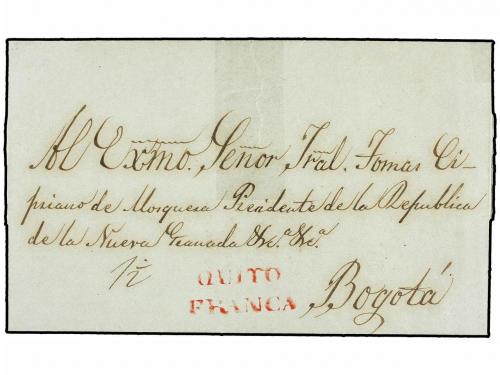 Al Exmo. Señor Jral. Tomas Ci-
priano de Mosquera Presidente de la Republica
de la Nueva Granada &c.a &c.a
1½
QUITO
FRANCA
Bogotá